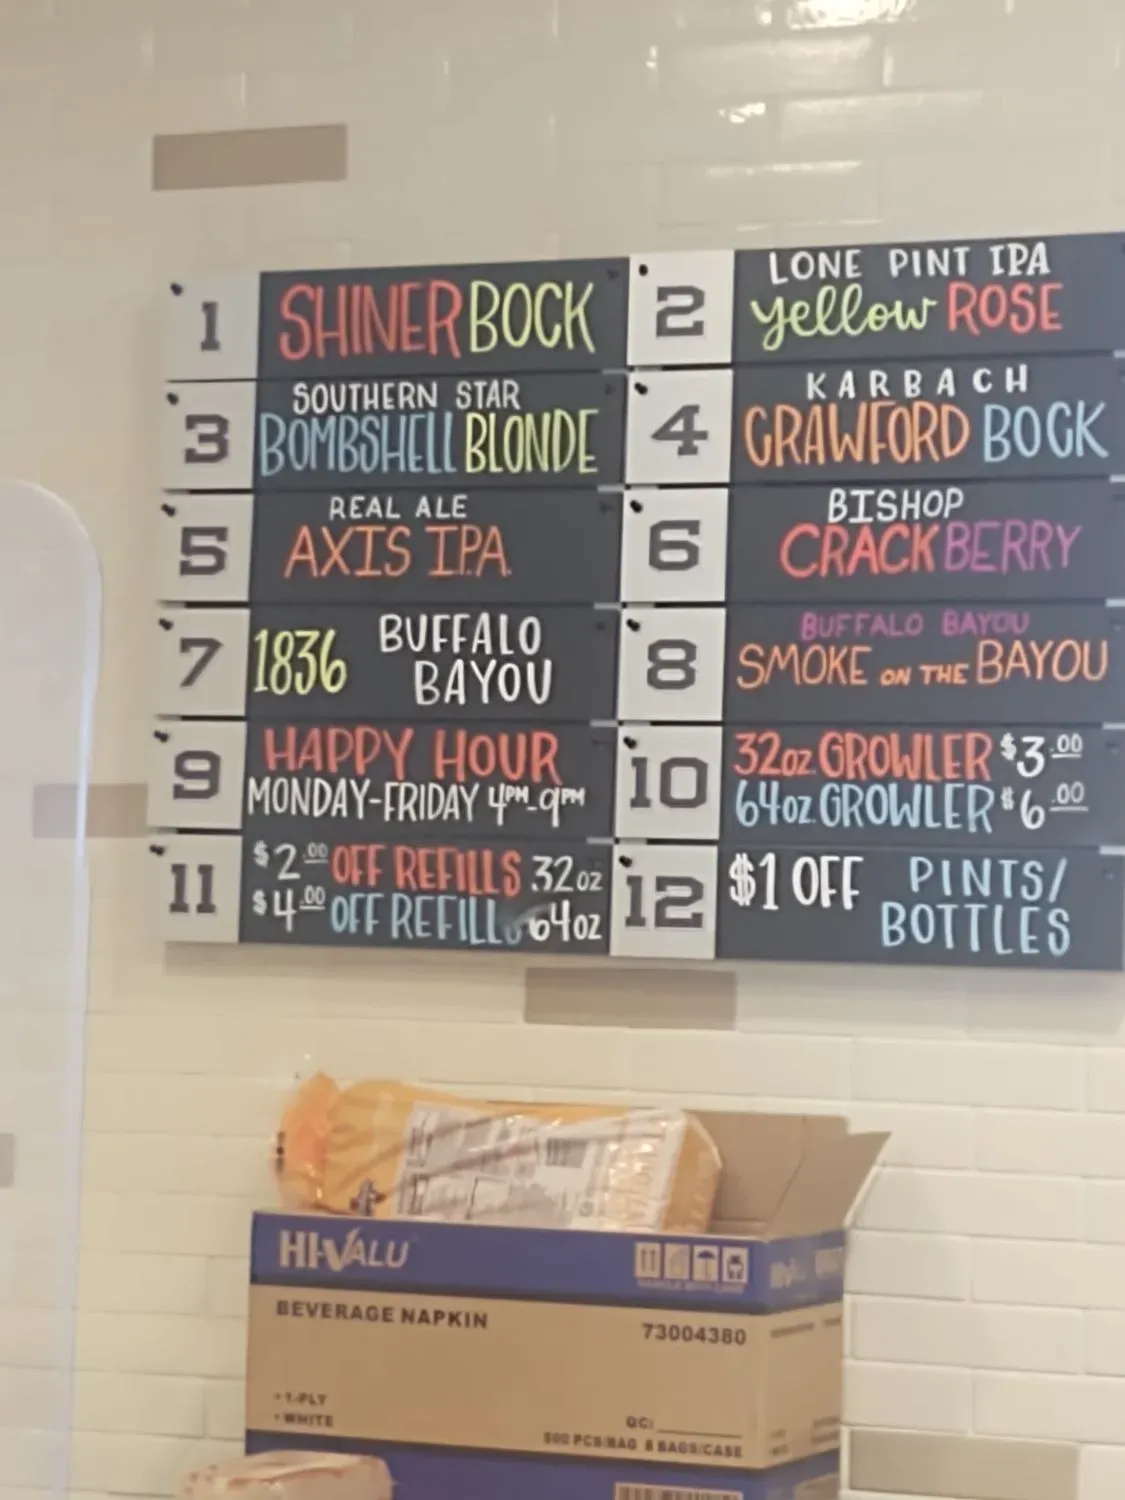 1
SHINER BOCK
2
LONE PINT IPA
yellow ROSE
3
SOUTHERN STAR
BOMBSHELL BLONDE
4
KARBACH
CRAWFORD BOCK
5
REAL ALE
AXIS IPA
6
BISHOP
CRACKBERRY
7
1836 BUFFALO
BAYOU
8
BUFFALO BAYOU
SMOKE ON THE BAYOU
9
HAPPY HOUR
MONDAY-FRIDAY 4PM-9PM
10
32oz GROWLER $3.00
64oz GROWLER $6.00
11
$2.00 OFF REFILLS 32oz
$4.00 OFF REFILLS 64oz
12
$1 OFF PINTS/
BOTTLES
HI-VALU
BEVERAGE NAPKIN
73004380
• 1-PLY
• WHITE
QC:
500 PCS/BAG 8 BAGS/CASE